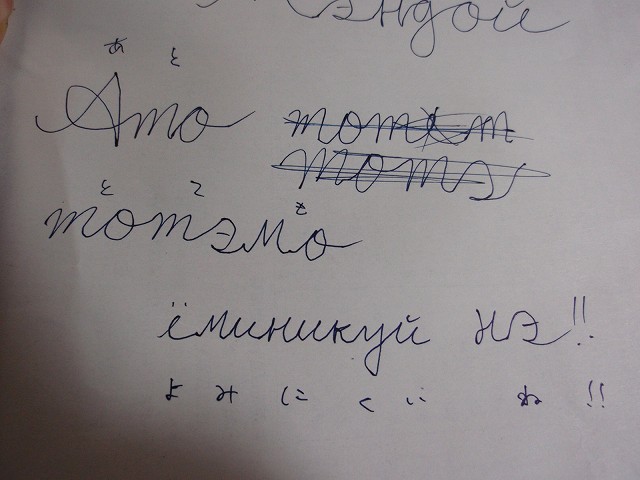 эндой
あ と
Ато
тотэ
と て も
тотэмо
ёминикуй нэ!!
よ み に く い ね !!